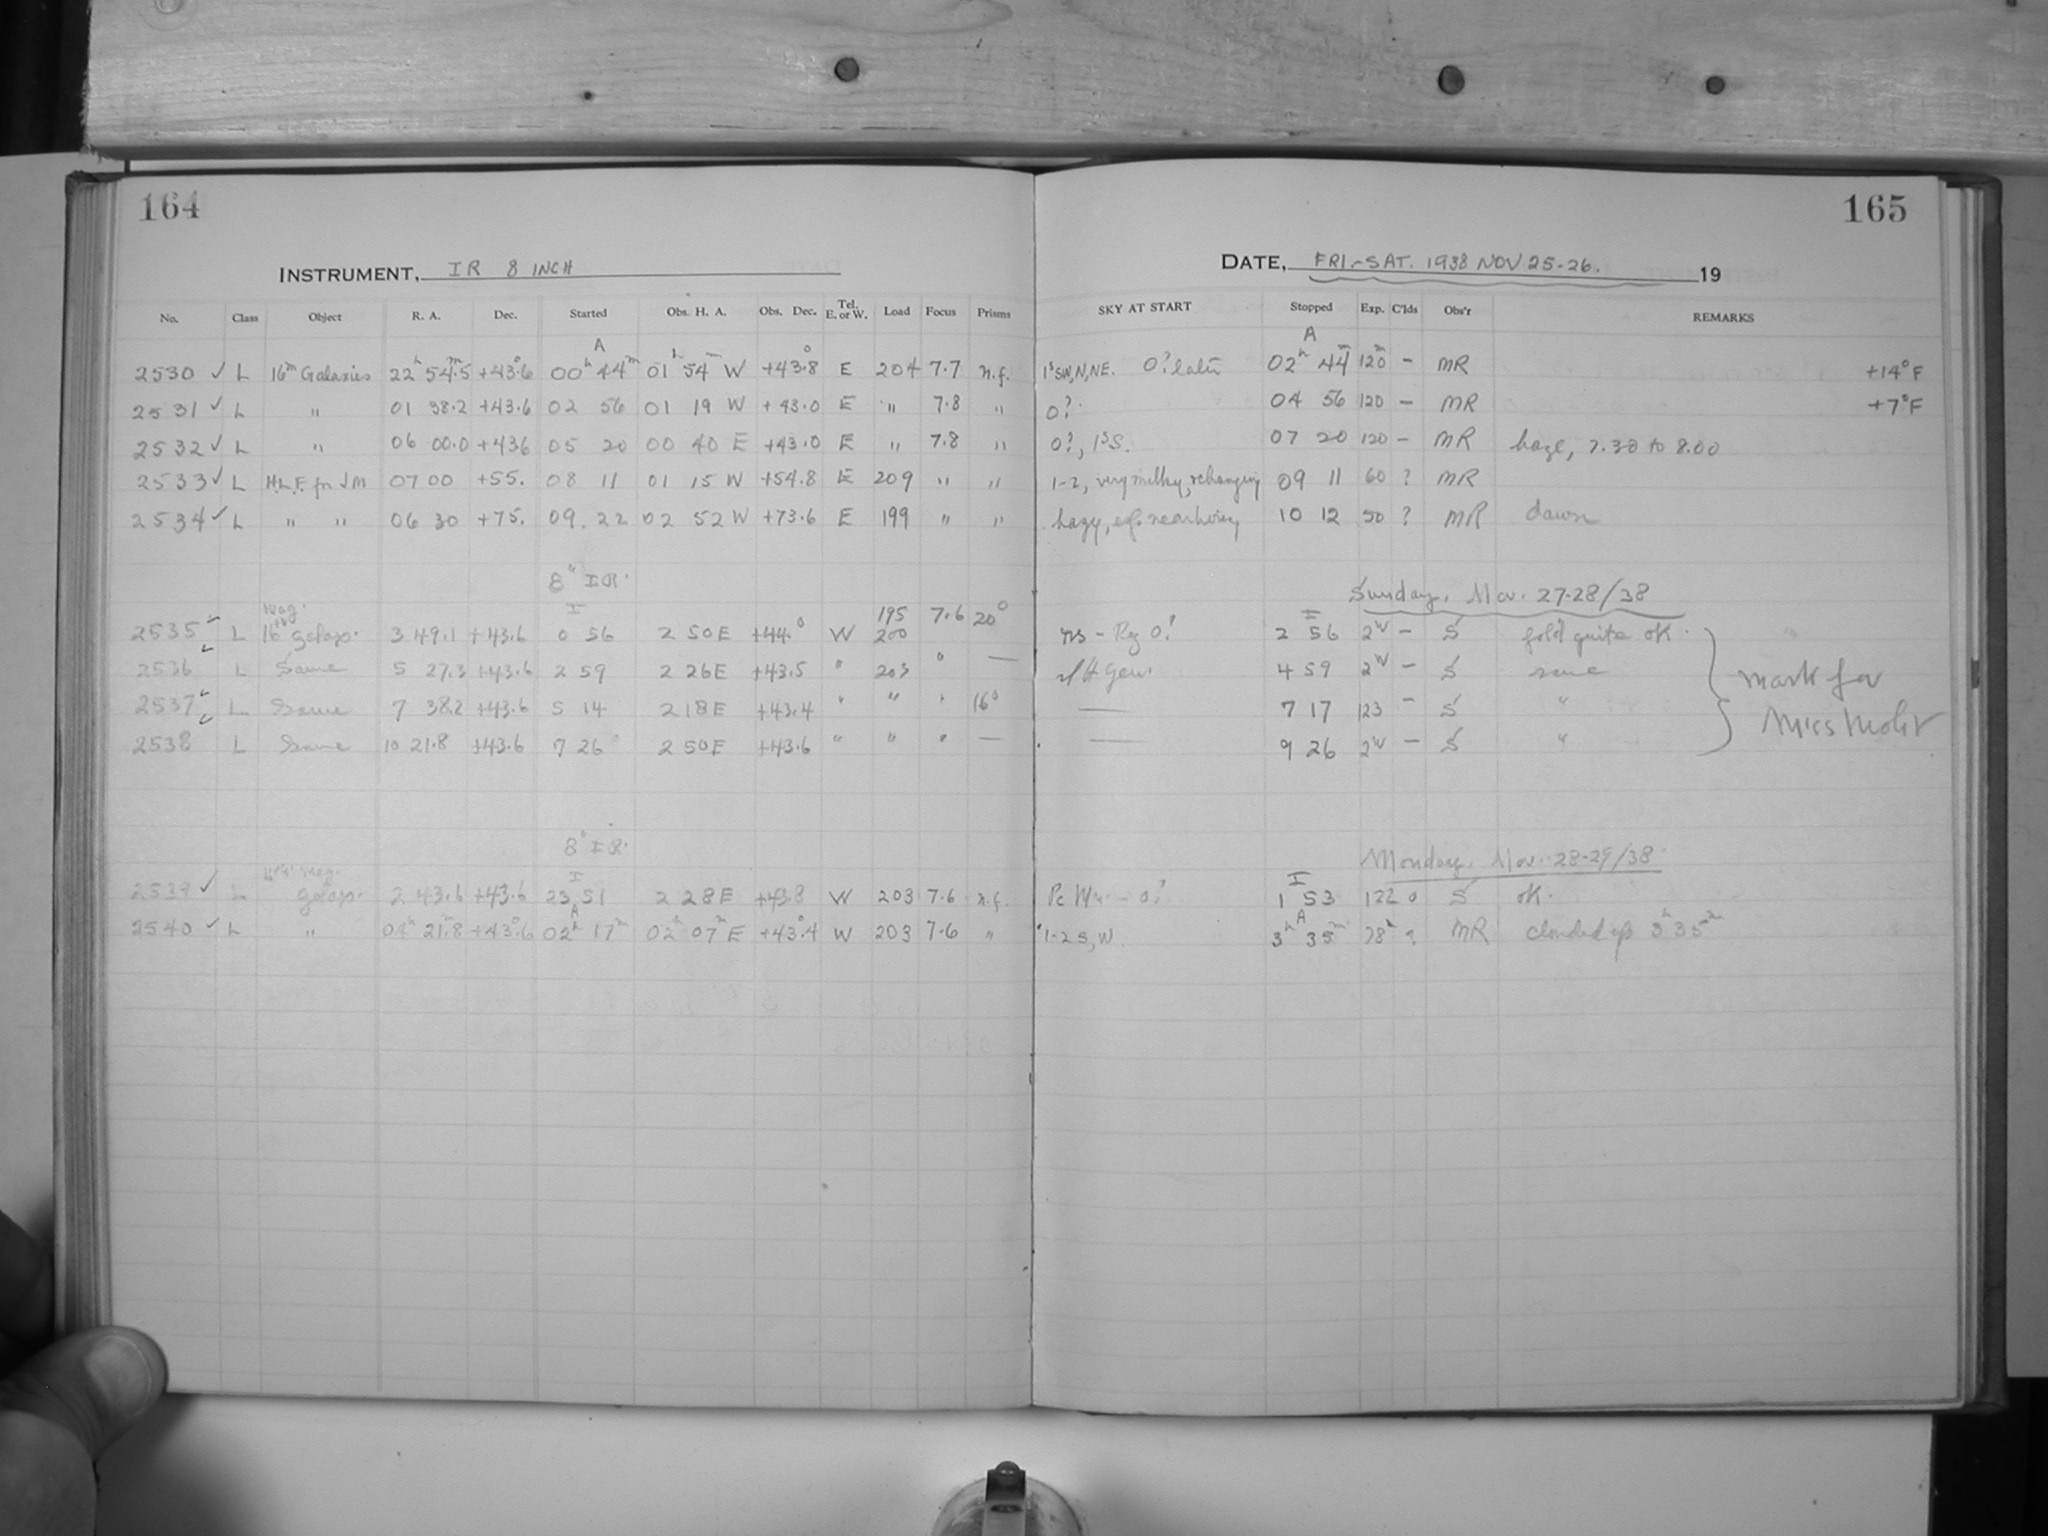 164
165
INSTRUMENT, IR 8 INCH
DATE, FRI.-SAT. 1938 NOV 25-26. 19
No. Class Object R. A. Dec. Started Obs. H. A. Obs. Dec. Tel. E. or W. Load Focus Prisms SKY AT START Stopped Exp. C'lds Obs'r REMARKS
A A
2530 ✓ L 16m Galaxies 22h 54.5m +43.6° 00h 44m 01h 54m W +43.8° E 204 7.7 n.f. 1s SW, N, NE. 0? later 02h 44m 120m - MR +14°F
2531 ✓ L " 01 38.2 +43.6 02 56 01 19 W +43.0 E " 7.8 " 0? 04 56 120 - MR +7°F
2532 ✓ L " 06 00.0 +436 05 20 00 40 E +43.0 E " 7.8 " 0?, 1s S. 07 20 120 - MR haze, 7.30 to 8.00
2533 ✓ L H.L.F. for JM 07 00 +55. 08 11 01 15 W +54.8 E 209 " " 1-2, very milky, & changing 09 11 60 ? MR
2534 ✓ L " " 06 30 +75. 09.22 02 52 W +73.6 E 199 " " hazy, 10 12 50 ? MR dawn
8" IR. Sunday, Nov. 27-28/38
I I
2535 ✓ L 16th mag. galaxs. 3 49.1 +43.6 0 56 2 50 E +44.° W 195 200 7.6 20° ns - Rg 0? 2 56 2W - S quite ok.
2536 L Same 5 27.3 +43.6 2 59 2 26 E +43.5 " 203 " — 4 59 2W - S same
mark for
2537 ✓ L Same 7 38.2 +43.6 5 14 2 18 E +43.4 " " " 16° — 7 17 123 - S "
Miss Mohr
2538 L Same 10 21.8 +43.6 7 26 2 50 E +43.6 " " " — — 9 26 2W - S "
8" IR. Monday, Nov. 28-29/38
I I
2539 ✓ L mag. galaxs. 2 43.6 +43.6 23 51 2 28 E +43.8 W 203 7.6 n.f. - 0? 1 53 122 0 S ok.
A A
2540 ✓ L " 04h 21.8m +43.6° 02h 17m 02h 07m E +43.4° W 203 7.6 " 1-2 S, W. 3h 35m 78 ? MR clouded up 3h 35m